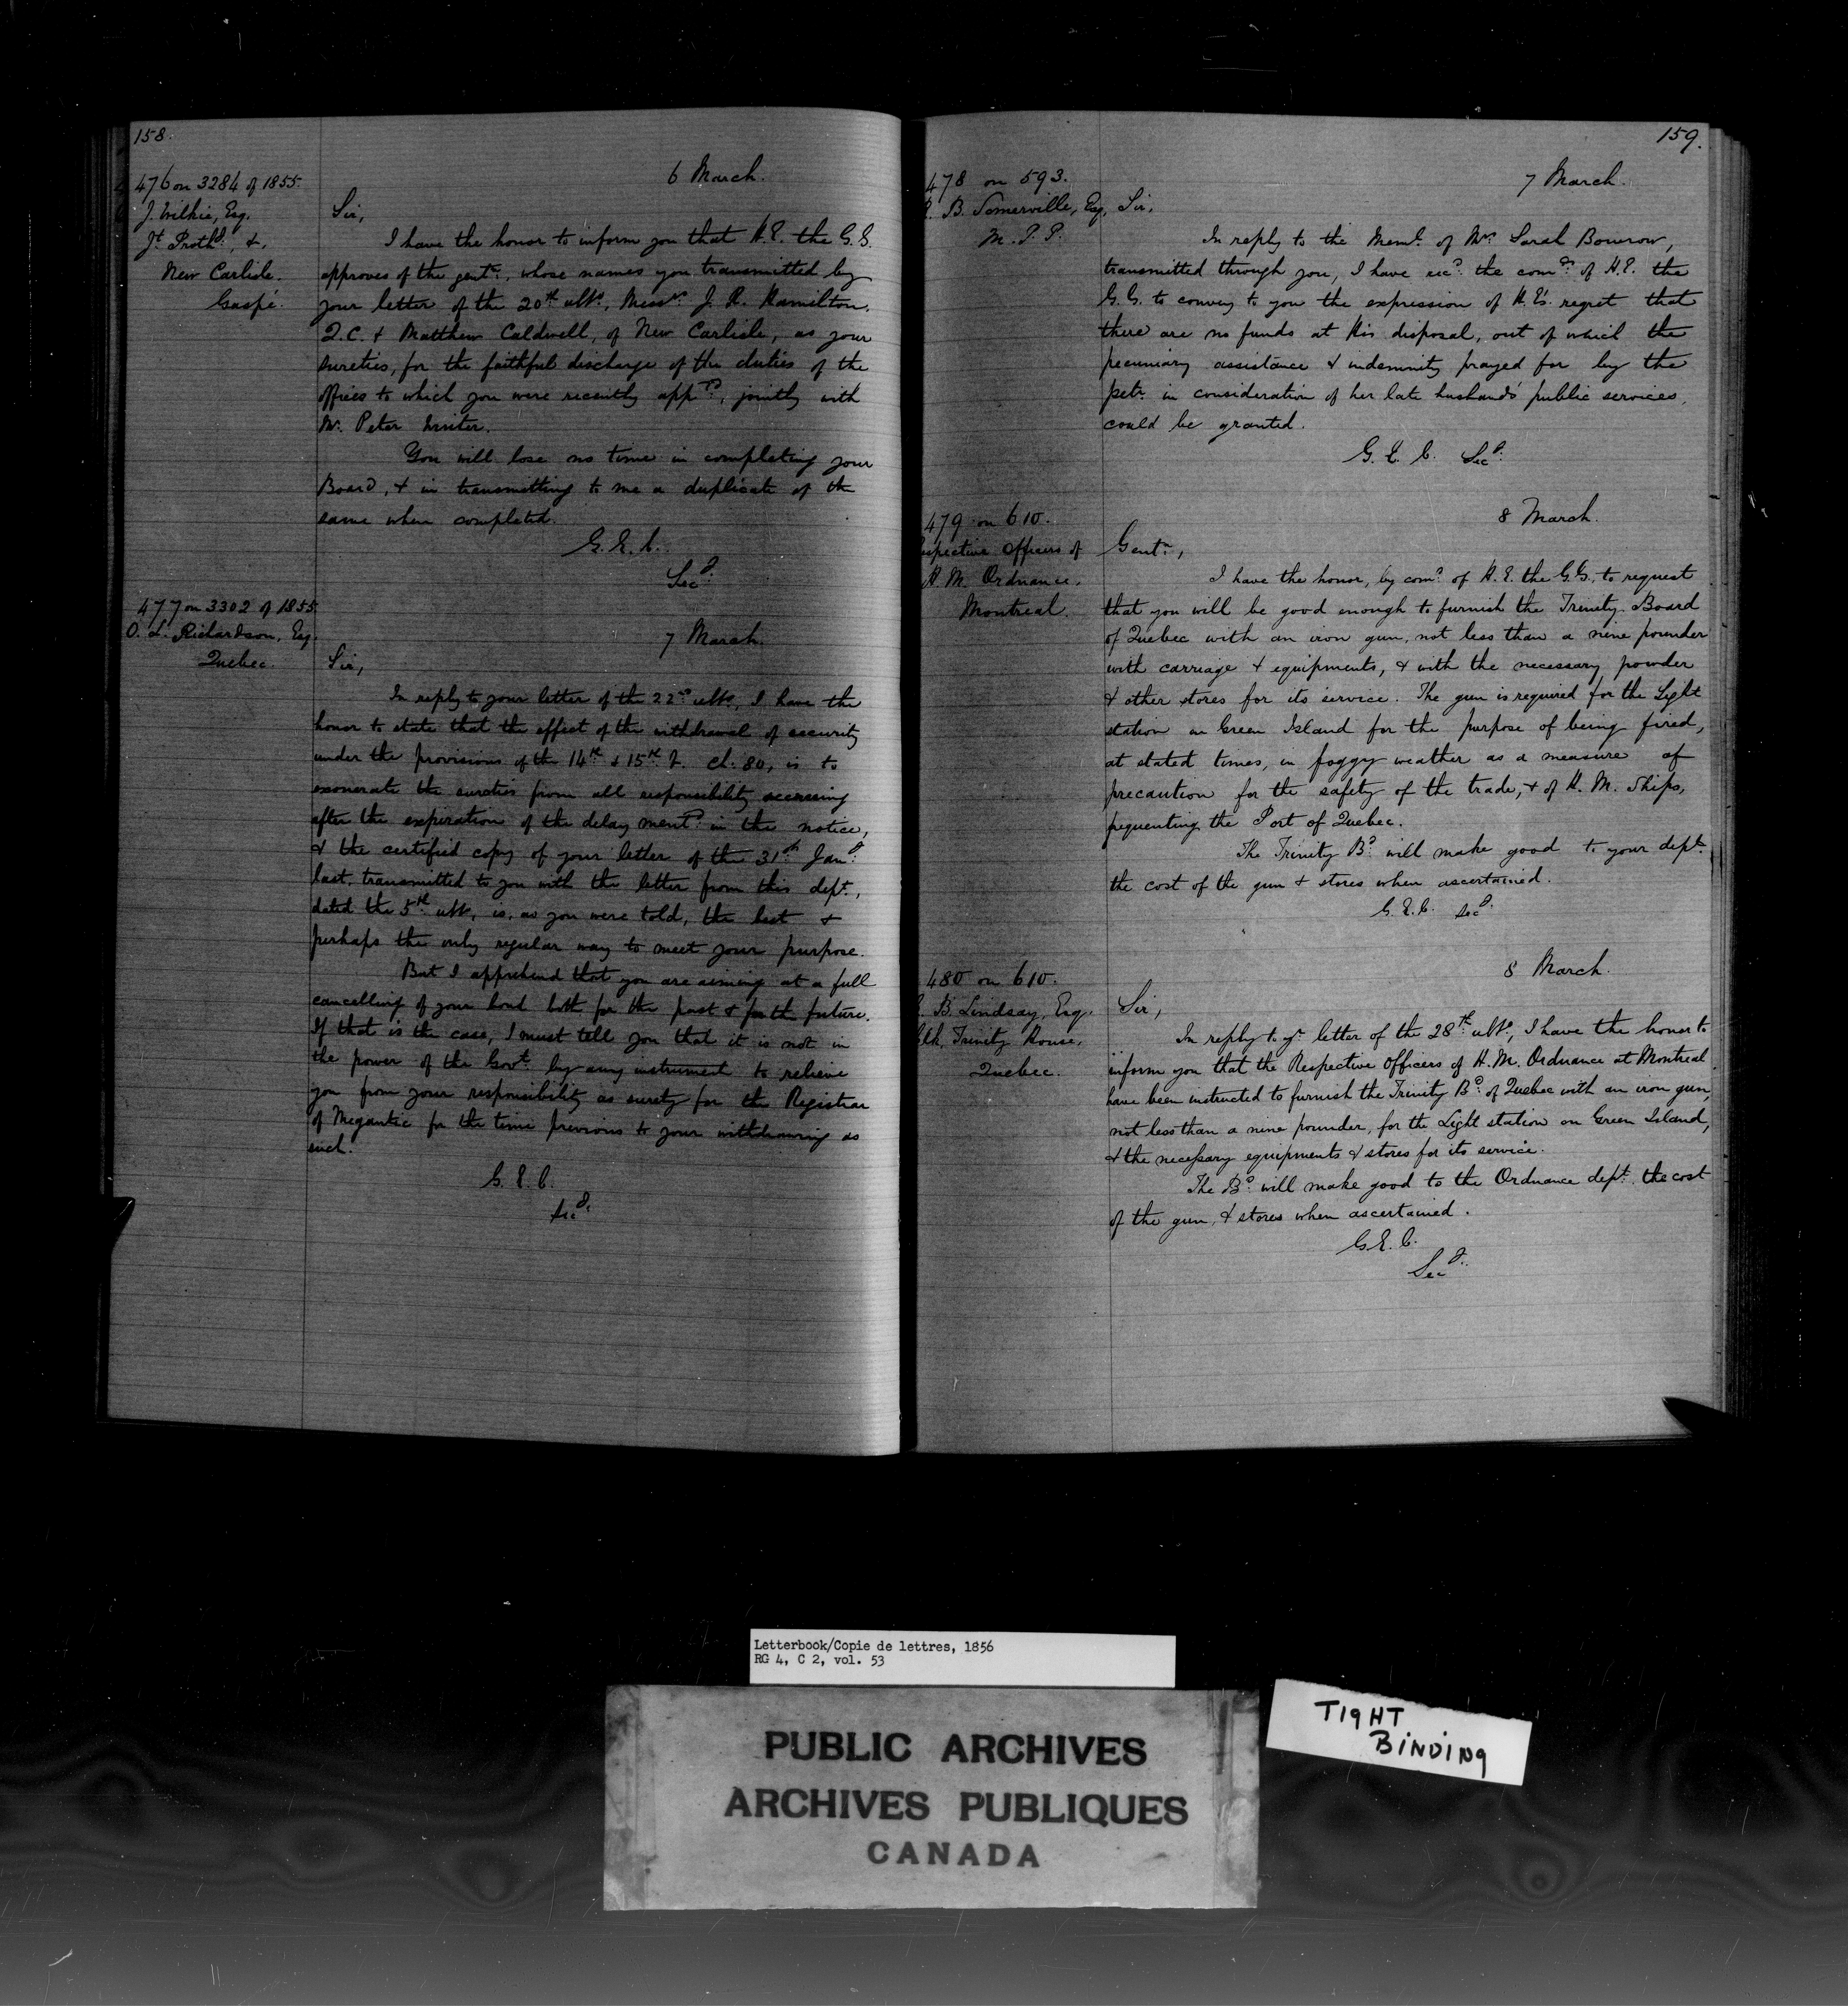 158.
476 on 3284 of 1855.
J. Wilkie, Esq.
Jt. Prothy., &.
New Carlisle.
Gaspé.
6 March.
Sir,
I have the honor to inform you that H.E. the G.G.
approves of the gentn., whose names you transmitted by
your letter of the 20th. ulto., Messrs. J. R. Hamilton,
Q.C. & Matthew Caldwell, of New Carlisle, as your
sureties, for the faithful discharge of the duties of the
offices to which you were recently appd., jointly with
Mr. Peter Winter.
You will lose no time in completing your
Board, & in transmitting to me a duplicate of the
same when completed.
G.E.C.
Secy.
477 on 3302 of 1855
O. L. Richardson, Esq.
Quebec.
7 March.
Sir,
In reply to your letter of the 22nd ulto., I have the
honor to state that the effect of the withdrawal of security
under the provisions of the 14th & 15th V. ch. 80, is to
exonerate the sureties from all responsibility accruing
after the expiration of the delay mentd. in the notice,
& the certified copy of your letter of the 31st. Jany.
last, transmitted to you with the letter from this dept.,
dated the 5th ulto, is, as you were told, the best &
perhaps the only regular way to meet your purpose.
But I apprehend that you are aiming at a full
cancelling of your bond both for the past & for the future.
If that is the case, I must tell you that it is not in
the power of the Govt. by any instrument to relieve
you from your responsibility as surety for the Registrar
of Megantic for the time previous to your withdrawing as
such.
G.E.C.
Secy.
159.
478 on 593.
B. Somerville, Esq,
M.P.P.
7 March.
Sir,
In reply to the Meml. of Mrs. Sarah Bowrow,
transmitted through you, I have recd. the comds. of H.E. the
G.G. to convey to you the expression of H.E's. regret that
there are no funds at His disposal, out of which the
pecuniary assistance & indemnity prayed for by the
petr. in consideration of her late husband's public services,
could be granted.
G.E.C. Secy.
479 on 610.
espective Officers of
H.M. Ordnance,
Montreal.
8 March.
Gentn.,
I have the honor, by comd. of H.E. the G.G., to request
that you will be good enough to furnish the Trinity Board
of Quebec with an iron gun, not less than a nine pounder
with carriage & equipments, & with the necessary powder
& other stores for its service. The gun is required for the Light
station on Green Island for the purpose of being fired,
at stated times, in foggy weather as a measure of
precaution for the safety of the trade, & of H.M. Ships,
frequenting the Port of Quebec.
The Trinity Bd. will make good to your dept.
the cost of the gun & stores when ascertained.
G.E.C. Secy.
480 on 610.
B. Lindsay, Esq.
Clk, Trinity House,
Quebec.
8 March.
Sir,
In reply to yr. letter of the 28th. ulto., I have the honor to
inform you that the Respective Officers of H.M. Ordnance at Montreal
have been instructed to furnish the Trinity Bd. of Quebec with an iron gun,
not less than a nine pounder, for the Light station on Green Island,
& the necessary equipments & stores for its service.
The Bd. will make good to the Ordnance dept. the cost
of the gun, & stores when ascertained.
G.E.C.
Secy.
Letterbook/Copie de lettres, 1856
RG 4, C 2, vol. 53
PUBLIC ARCHIVES
ARCHIVES PUBLIQUES
CANADA
TIGHT
BINDING